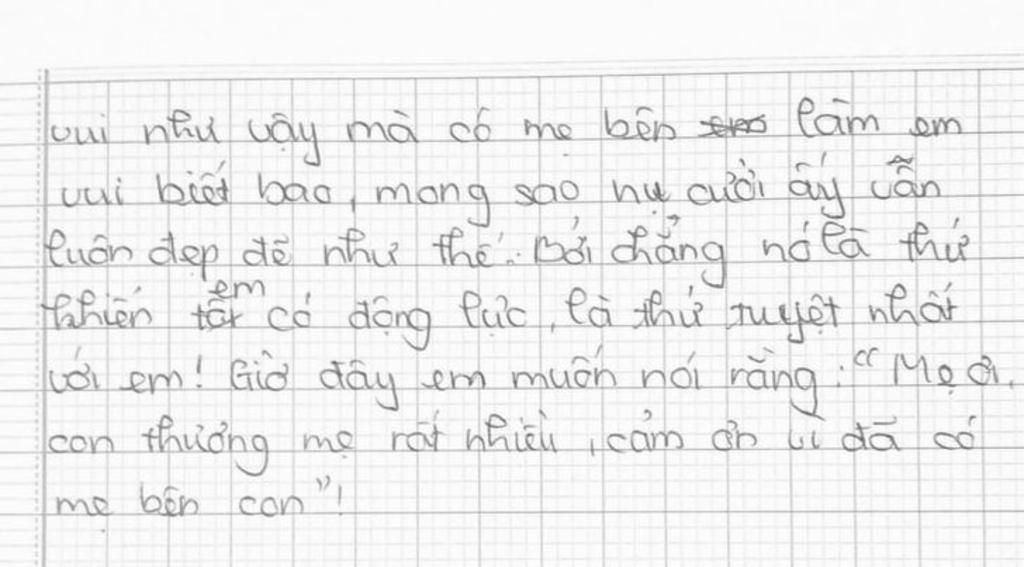 vui như vậy mà có mẹ bên làm em
vui biết bao, mong sao nụ cười ấy vẫn
luôn đẹp đẽ như thế. Bởi chẳng nó là thứ
khiến em có động lực, là thứ tuyệt nhất
với em! Giờ đây em muốn nói rằng: "Mẹ ơi,
con thương mẹ rất nhiều, cảm ơn vì đã có
mẹ bên con"!